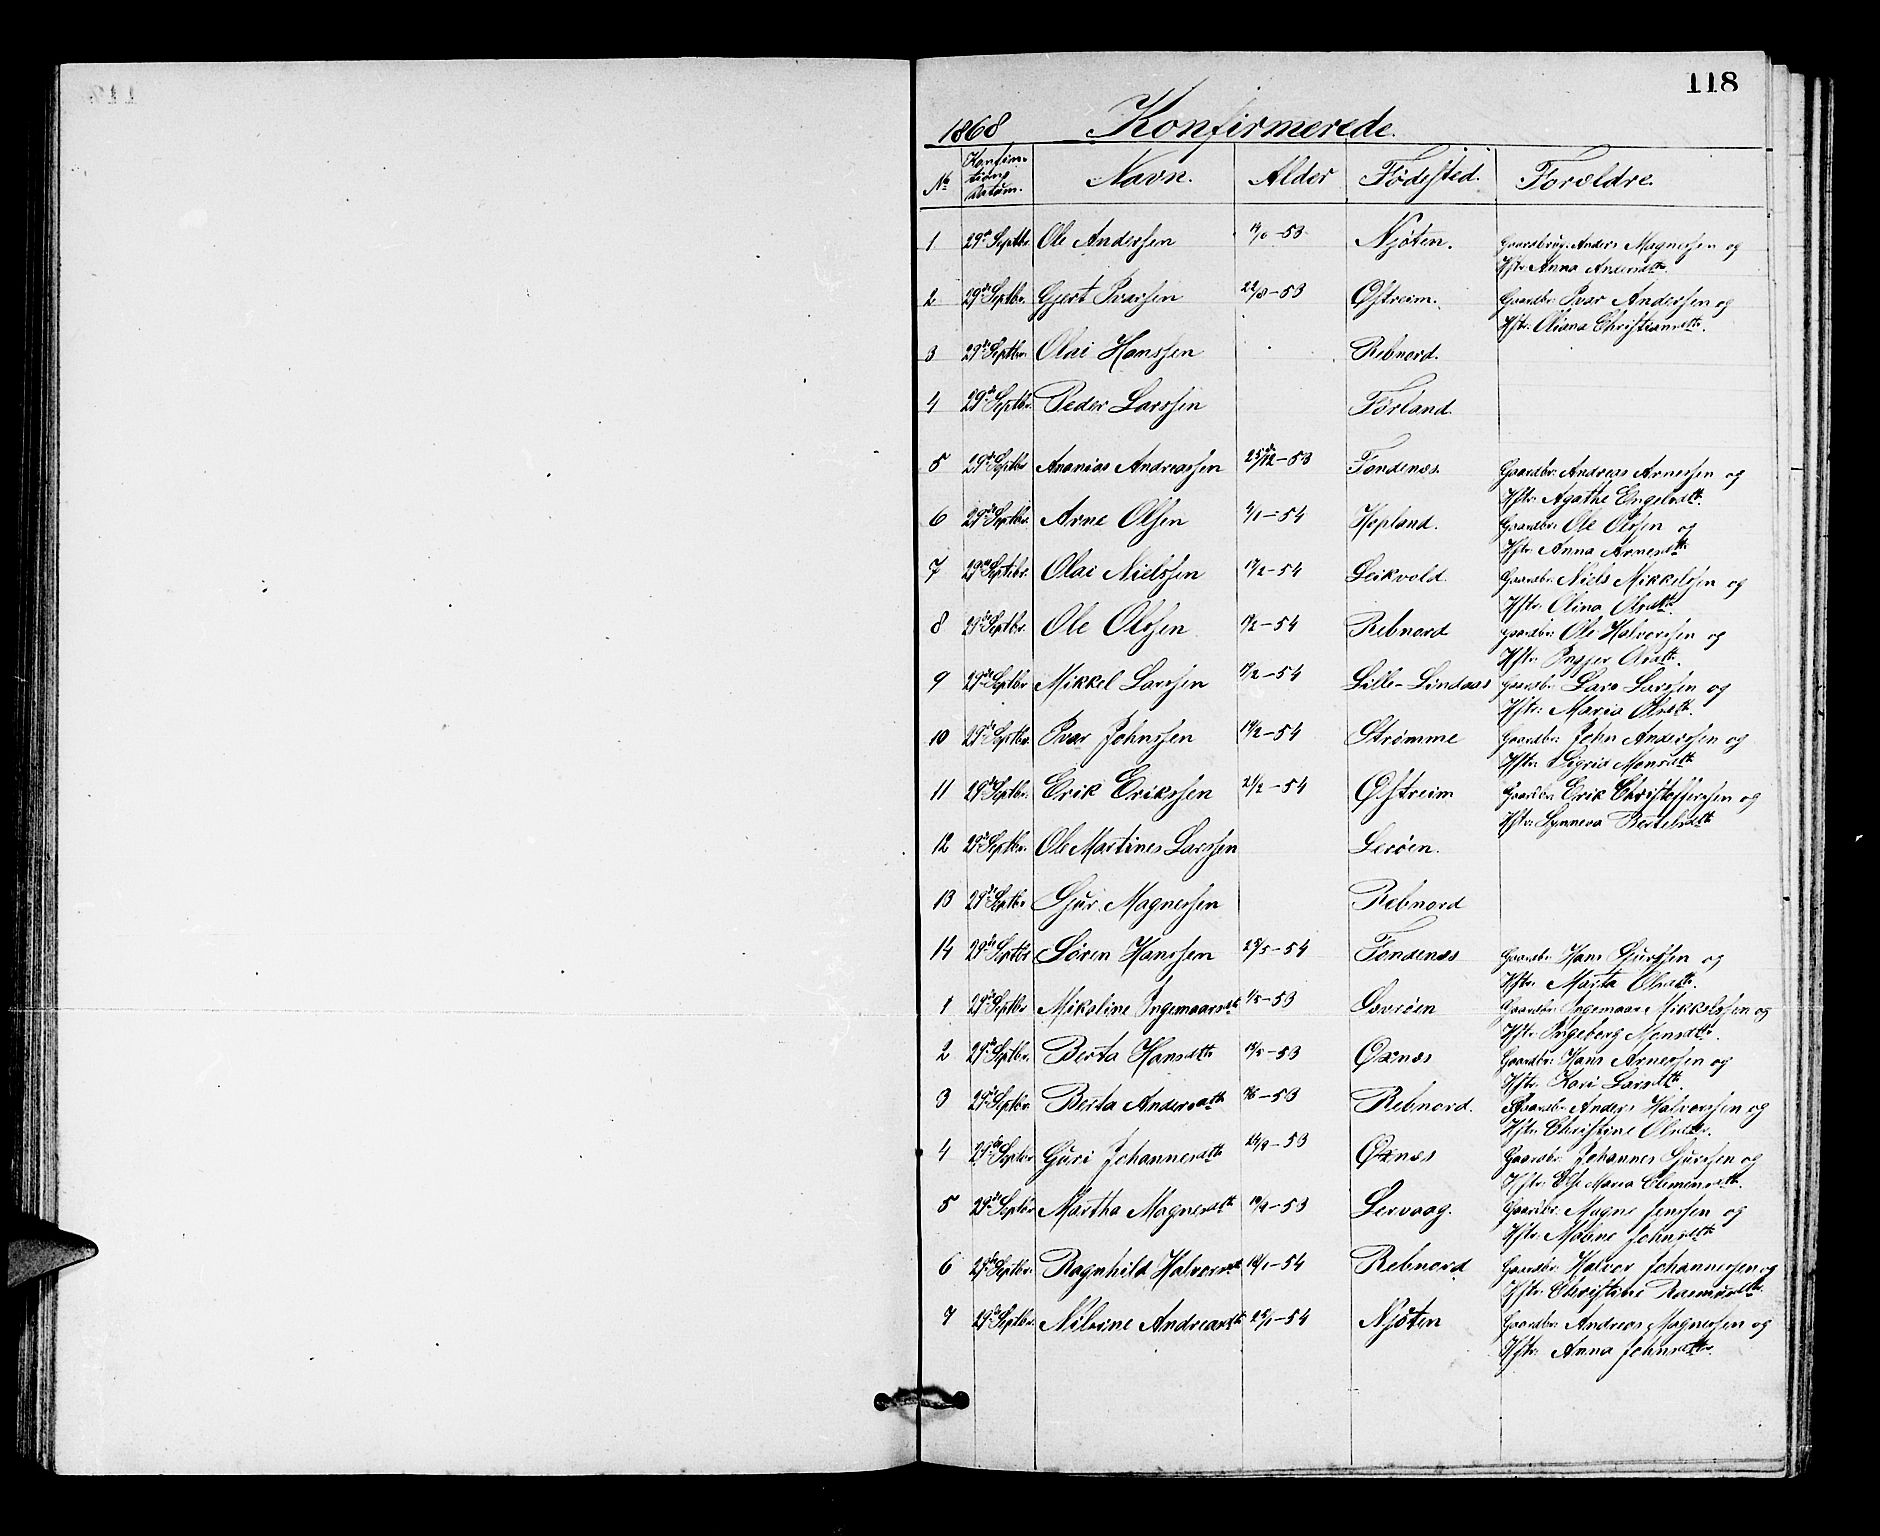 118
1868 Konfirmerede.
No Konfirmationsdatum. Navn. Alder Fødested. Forældre.
1 29de Septbr. Ole Anderssen -53 Njøten. Gaardbrug. Anders Magnessen og
Hstr. Anna Andersdtr.
2 29de Septbr. Gjert Ivarssen 22/8-53 Østreim. Gaardbr. Ivar Anderssen og
Hstr. Oliana Christiansdtr.
3 29de Septbr. Olai Hanssen Rebnord.
4 29de Septbr. Peder Larssen Førland.
5 29de Septbr. Ananias Andreassen 25/12-53 Fondenæs Gaardbr. Andreas Arnessen og
Hstr. Agathe Engelsdtr.
6 29de Septbr. Arne Olsen -54 Hopland. Gaardbr. Ole Olssen og
Hstr. Anna Arnesdtr.
7 29de Septbr. Olai Nielssen /2-54 Leikvold. Gaardbr. Niels Mikkelssen og
Hstr. Olina Olsdtr.
8 29de Septbr. Ole Olssen /2-54 Rebnord Gaardbr. Ole Halvorssen og
Hstr. Olsdtr.
9 29de Septbr. Mikkel Larssen /2-54 Lille-Lindaas Gaardbr. Lars Larssen og
Hstr. Maria Olsdtr.
10 29de Septbr. Ivar Johnssen /2-54 Strømme Gaardbr. John Anderssen og
Hstr. Sigrid Monsdtr.
11 29de Septbr. Erik Erikssen 21/2-54 Østreim Gaardbr. Erik Christofferssen og
Hstr. Synneva Bertelsdtr.
12 29de Septbr. Ole Martines Larssen Lerøen.
13 29de Septbr. Gjur. Magnessen Rebnord
14 29de Septbr. Søren Hanssen /5-54 Fondenæs Gaardbr. Hans Gjurssen og
Hstr. Marta Olsdtr.
1 29de Septbr. Mikaline Ingemaarsdtr. /5-53 Gaardbr. Ingemaar Mikkelssen og
Hstr. Ingeborg Monsdtr.
2 29de Septbr. Berta Hansdtr. /5-53 Øxnæs Gaardbr. Hans Arnessen og
Hstr. Kari Larsdtr.
3 29de Septbr. Berta Andersdtr. -53 Rebnord. Gaardbr. Anders Halvorssen og
Hstr. Christine Olsdtr.
4 29de Septbr. Guri Johannesdtr. /9-53 Øxnæs Gaardbr. Johannes Gjurssen og
Hstr. Else Maria Clemensdtr.
5 29de Septbr. Martha Magnesdtr. /9-53 Lervaag. Gaardbr. Magne Jenssen og
Hstr. Malene Johnsdtr.
6 29de Septbr. Ragnhild Halvorsdtr. /1-54 Rebnord Gaardbr. Halvor Johannessen og
Hstr. Christine Rasmusdtr.
7 29de Septbr. Nilsine Andreasdtr. /1-54 Njøten Gaardbr. Andreas Magnessen og
Hstr. Anna Johnsdtr.